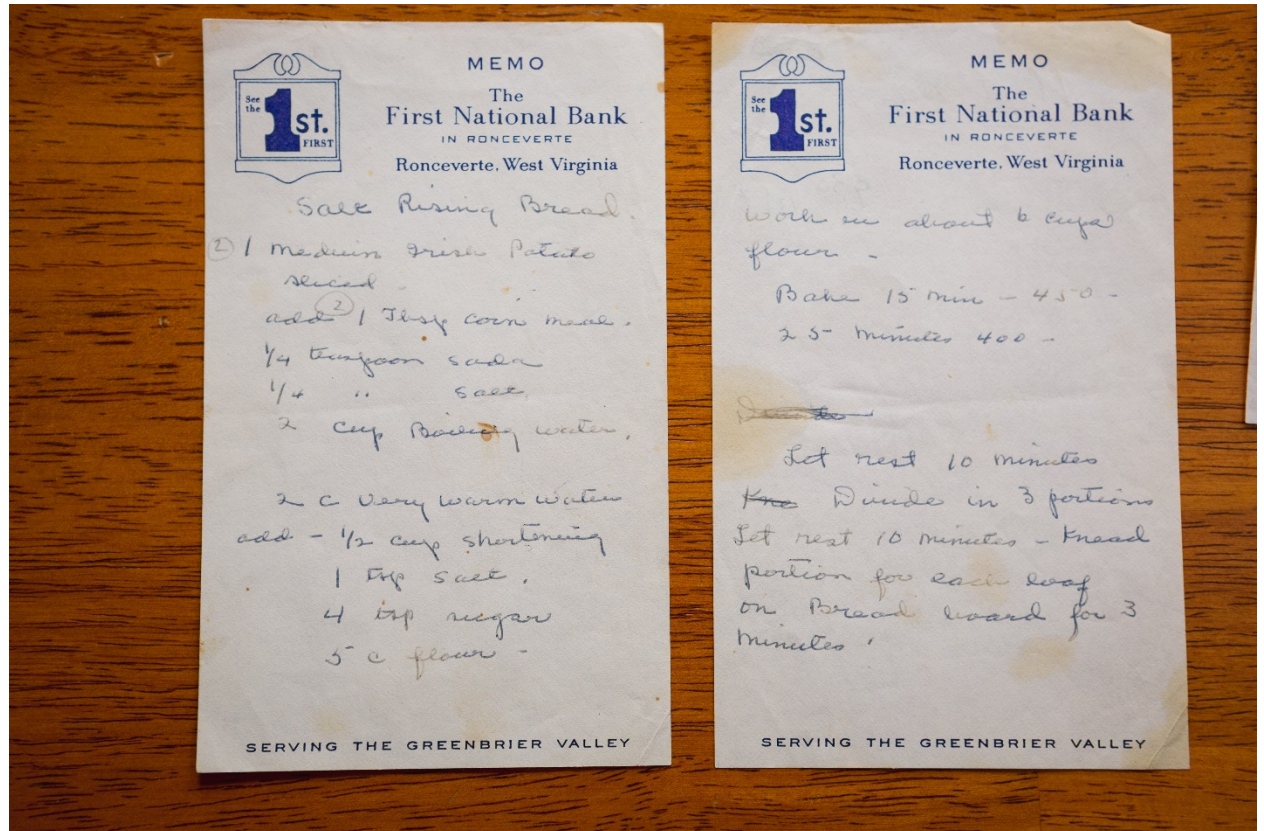 MEMO
See the 1st. FIRST
The
First National Bank
IN RONCEVERTE
Ronceverte, West Virginia
Salt Rising Bread.
(2) 1 Medium Irish Potato
sliced.
add (2) 1 Tbsp corn meal.
1/4 teaspoon soda
1/4 " salt.
2 cup Boiling water.
2 c very warm water
add - 1/2 cup shortening
1 tsp salt.
4 tsp sugar
5 c flour -
SERVING THE GREENBRIER VALLEY
MEMO
See the 1st. FIRST
The
First National Bank
IN RONCEVERTE
Ronceverte, West Virginia
Work in about 6 cups
flour -
Bake 15 min - 450 -
25 minutes 400 -
Let rest 10 minutes
Divide in 3 portions
Let rest 10 minutes - Knead
portion for each loaf
on Bread board for 3
minutes.
SERVING THE GREENBRIER VALLEY